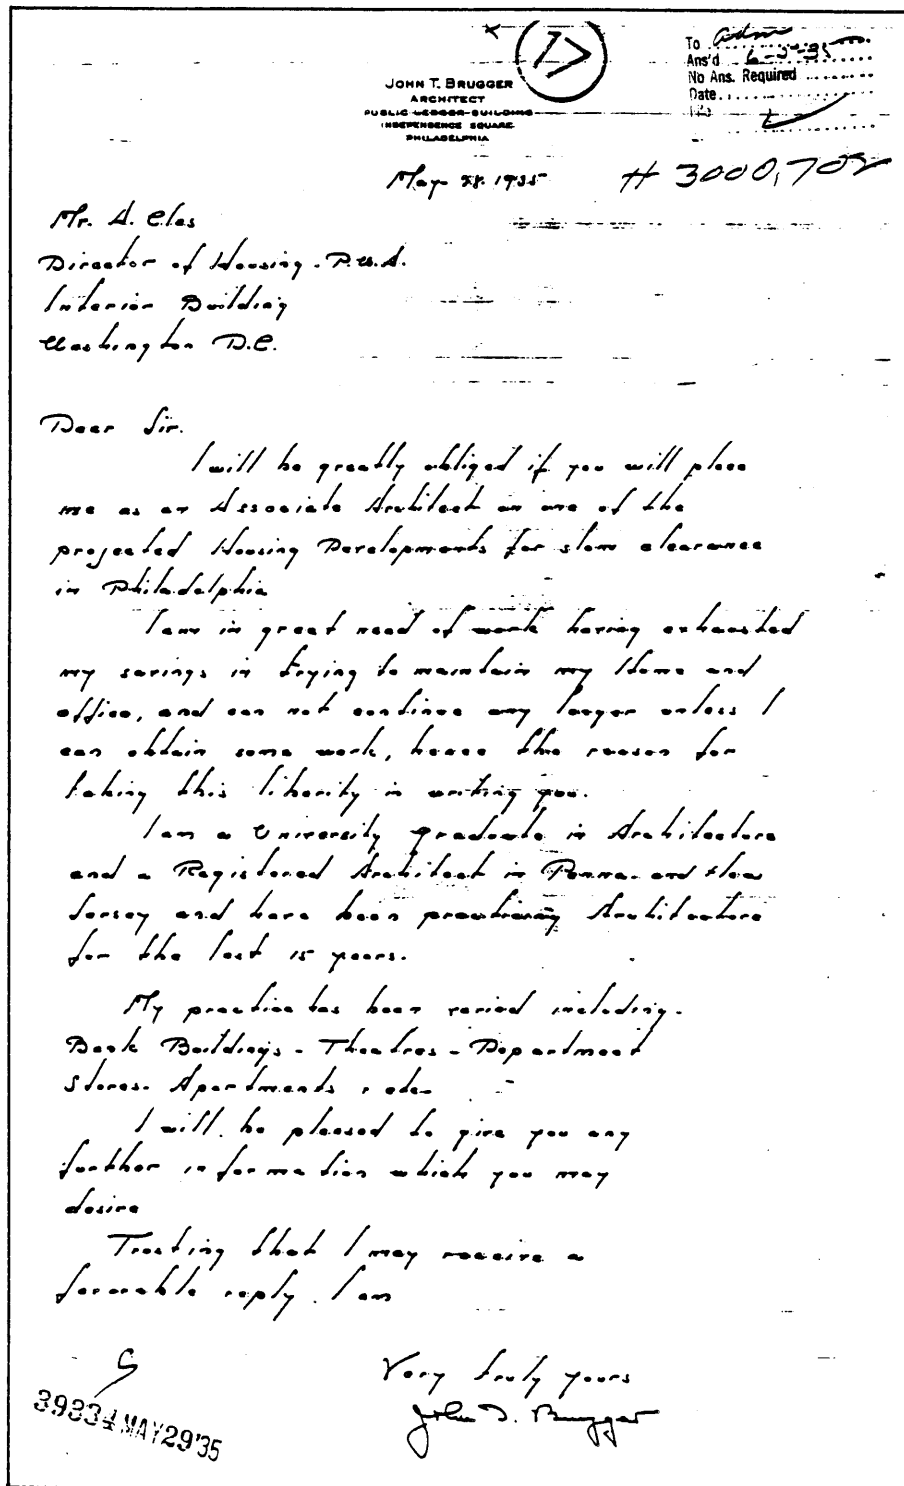 17
To Adm
Ans'd 6-5-35
No Ans. Required
Date
JOHN T. BRUGGER
ARCHITECT
PUBLIC LEDGER BUILDING
INDEPENDENCE SQUARE
PHILADELPHIA
May 28. 1935
# 3000,702
Mr. A. Clas
Director of Housing. P.W.A.
Interior Building
Washington D.C.
Dear Sir.
I will be greatly obliged if you will place
me as an Associate Architect on one of the
projected Housing Developments for slum clearance
in Philadelphia
I am in great need of work having exhausted
my savings in trying to maintain my Home and
office, and can not continue any longer unless I
can obtain some work, hence the reason for
taking this liberity in writing you.
I am a University graduate in Architecture
and a Registered Architect in Penna. and New
Jersey and have been practicing Architecture
for the last 15 years.
My practice has been varied including.
Bank Buildings - Theatres - Department
Stores. Apartments, etc.
I will be pleased to give you any
further information which you may
desire
Trusting that I may receive a
favorable reply. I am
Very truly yours
John T. Brugger
39334 MAY 29 '35